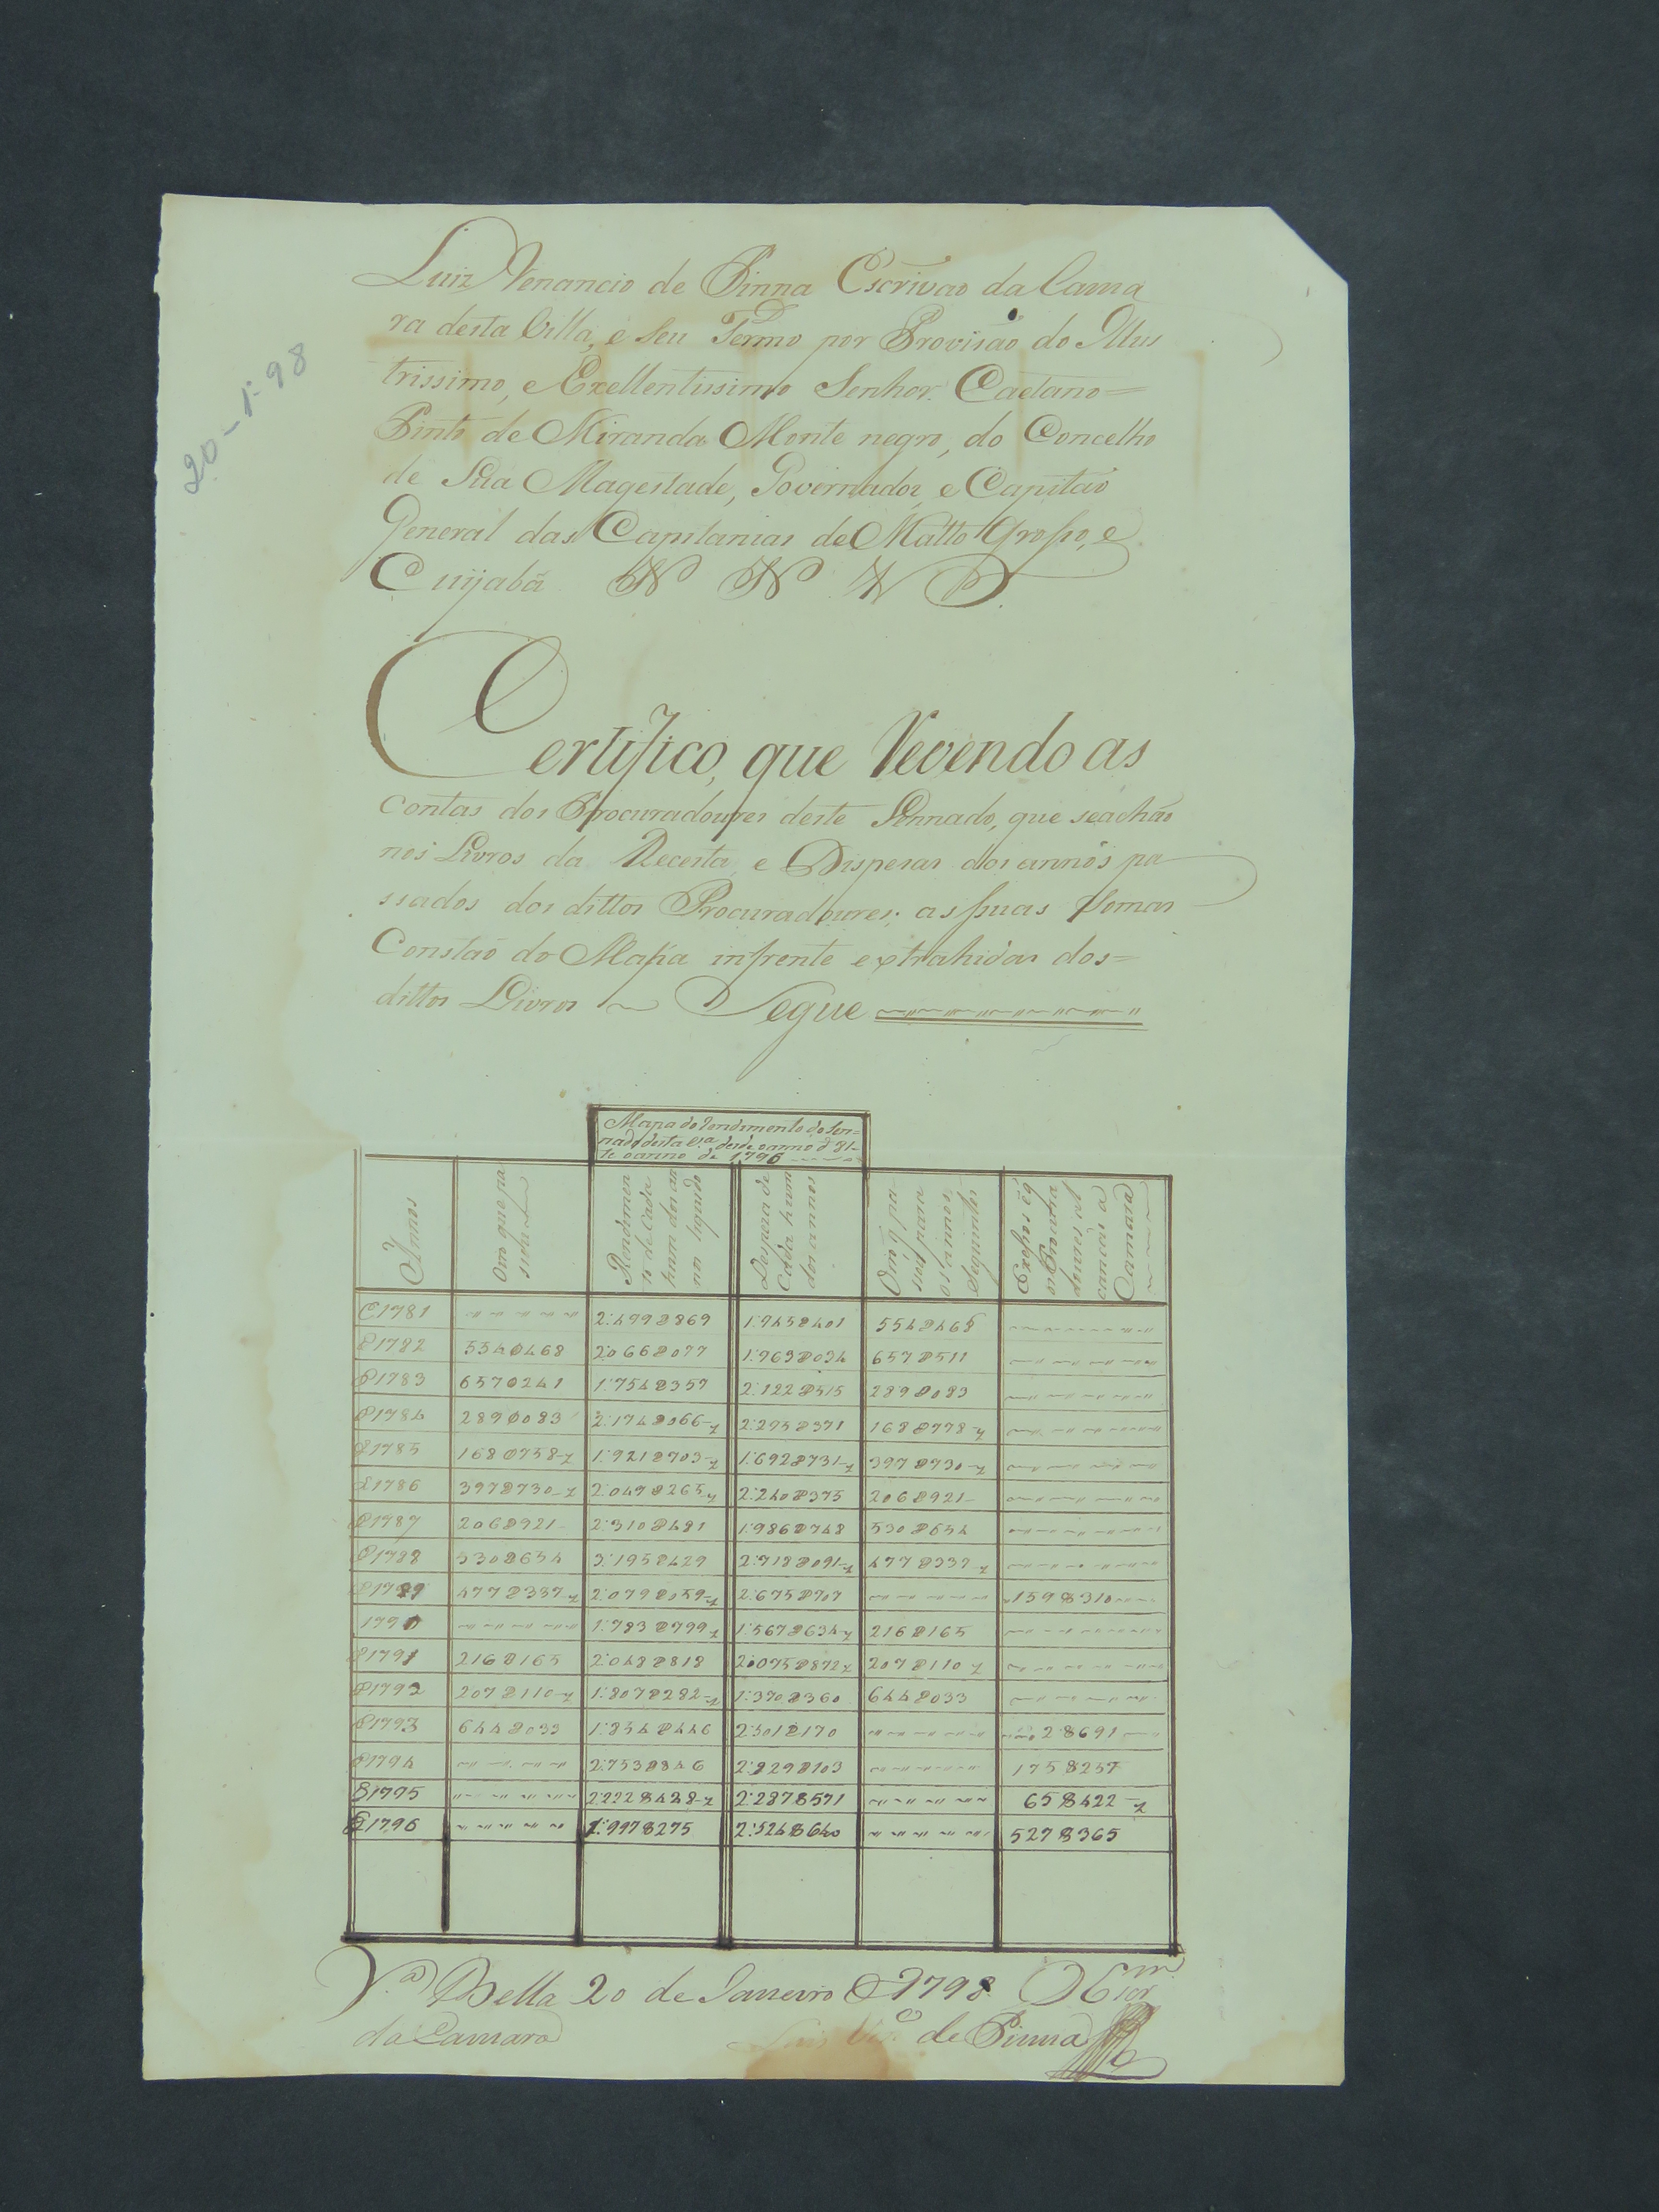 20-1-98
Luiz Venancio de Pinna Escrivaõ da Cama
ra desta Villa, e Seu Termo por Provisaõ do Illus
trissimo, e Exellentissimo Senhor Caetano=
Pinto de Miranda Monte negro, do Concelho
de Sua Magestade, Governador, e Capitaõ
General das Capitanias de Matto Grosso, e
Cuijabá
Certifico, que Revendo as
contas dos Procuradoures deste Sennado, que seachaõ
nos Livros da Receita, e Dispesas dos annos pa
ssados dos dittos Procuradoures; as suas Somas
Constaõ do Mapa infrente extrahidas dos=
dittos Livros ~ Segue
Mapa do Rendimento do Sen=
nado desta Va. desde o anno d 81
te o anno de 1796
Annos
Oiro que pa
sa
Rendimen
to de Cada
hum dos an
nos liquido
Despeza de
Cada hum
dos annos
Oiro q pa
sou para
os annos
Seguintes
Exessos e q
os Procura
doures al
cansaõ a
Camara
1781 2:4998869 1:9458401 5548468
1782 5548468 2:0668077 1:9638034 6578511
1783 6578241 1:7548357 2:1228515 2898083
1784 2898083 2:1748066-7 2:2958371 1688778-7
1785 1688758-7 1:9218703-7 1:6928731-7 3978730-7
1786 3978730-7 2:0498265-7 2:2408375 2068921-
1787 2068921- 2:3108481 1:9868748 5308654
1788 5308654 3:1958429 2:7188091-7 4778337-7
1789 4778337-7 2:0798059-7 2:6758707 1598310
1790 1:7838799-7 1:5678634-7 2168165
1791 2168165 2:0488818 2:0758872-7 2078110-7
1792 2078110-7 1:8078282-7 1:3708360 6448033
1793 6448033 1:8548446 2:5018170 28691
1794 2:7538846 2:9298103 1758257
1795 2:2228428-7 2:2878571 658422-7
1796 1:9978275 2:5248640 5278365
Va. Bella 20 de Janeiro d 1798
da Camara
Luis Veno. de Pinna